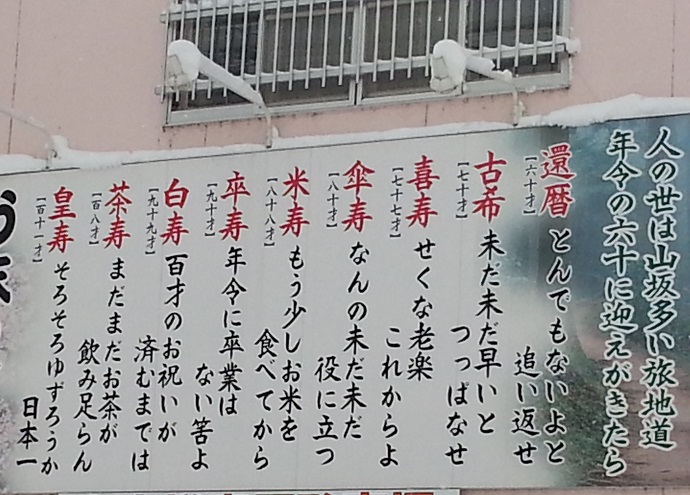 人の世は山坂多い旅地道
年令の六十に迎えがきたら
還暦
【六十才】
とんでもないよと
追い返せ
古希
【七十才】
未だ未だ早いと
つっぱなせ
喜寿
【七十七才】
せくな老楽
これからよ
傘寿
【八十才】
なんの未だ未だ
役に立つ
米寿
【八十八才】
もう少しお米を
食べてから
卒寿
【九十才】
年令に卒業は
ない筈よ
白寿
【九十九才】
百才のお祝いが
済むまでは
茶寿
【百八才】
まだまだお茶が
飲み足らん
皇寿
【百十一才】
そろそろゆずろうか
日本一